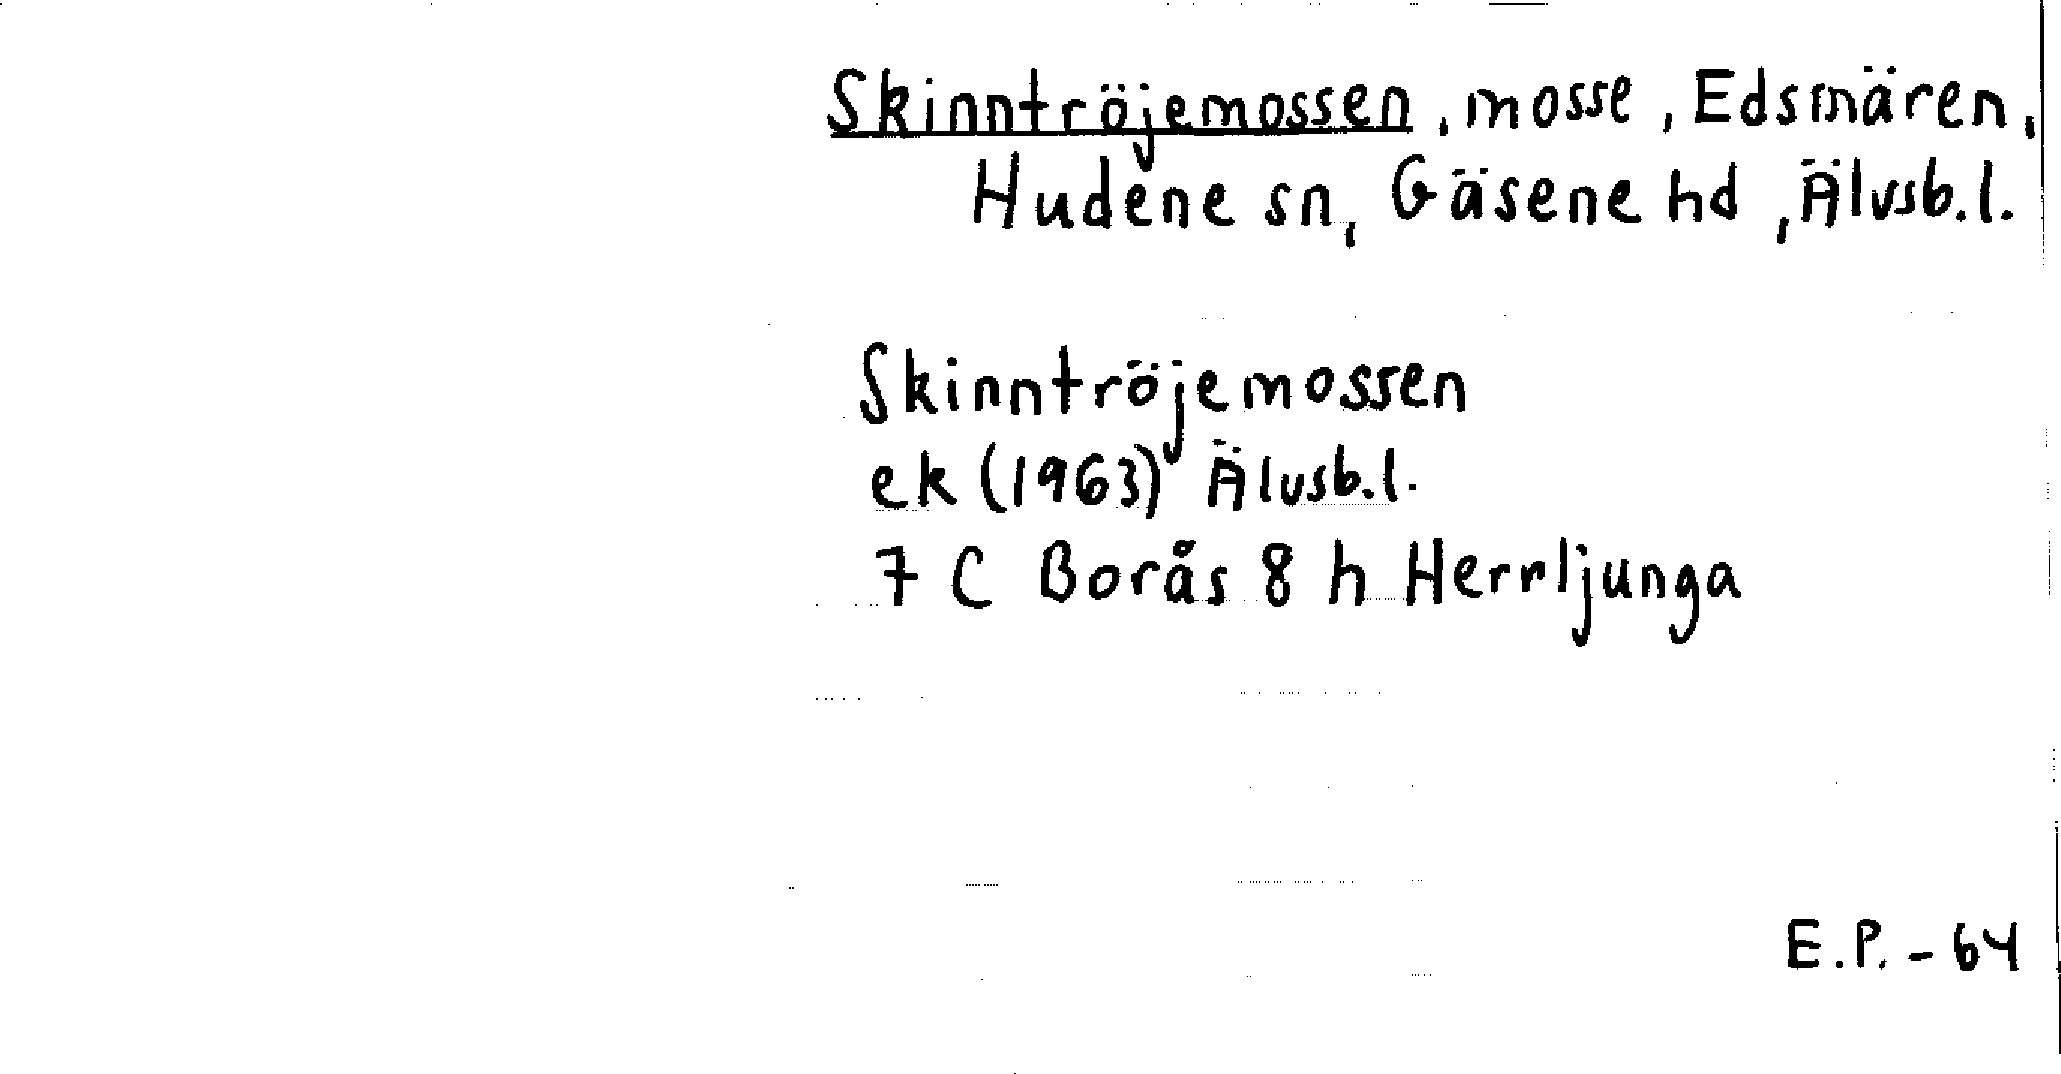 Skinntröjemossen, mosse, Edsmären,
Hudene sn, Gäsene hd, Älvsb.l.
Skinntröjemossen
ek (1963) Älvsb.l.
7 C Borås 8 h Herrljunga
E.P. - 64